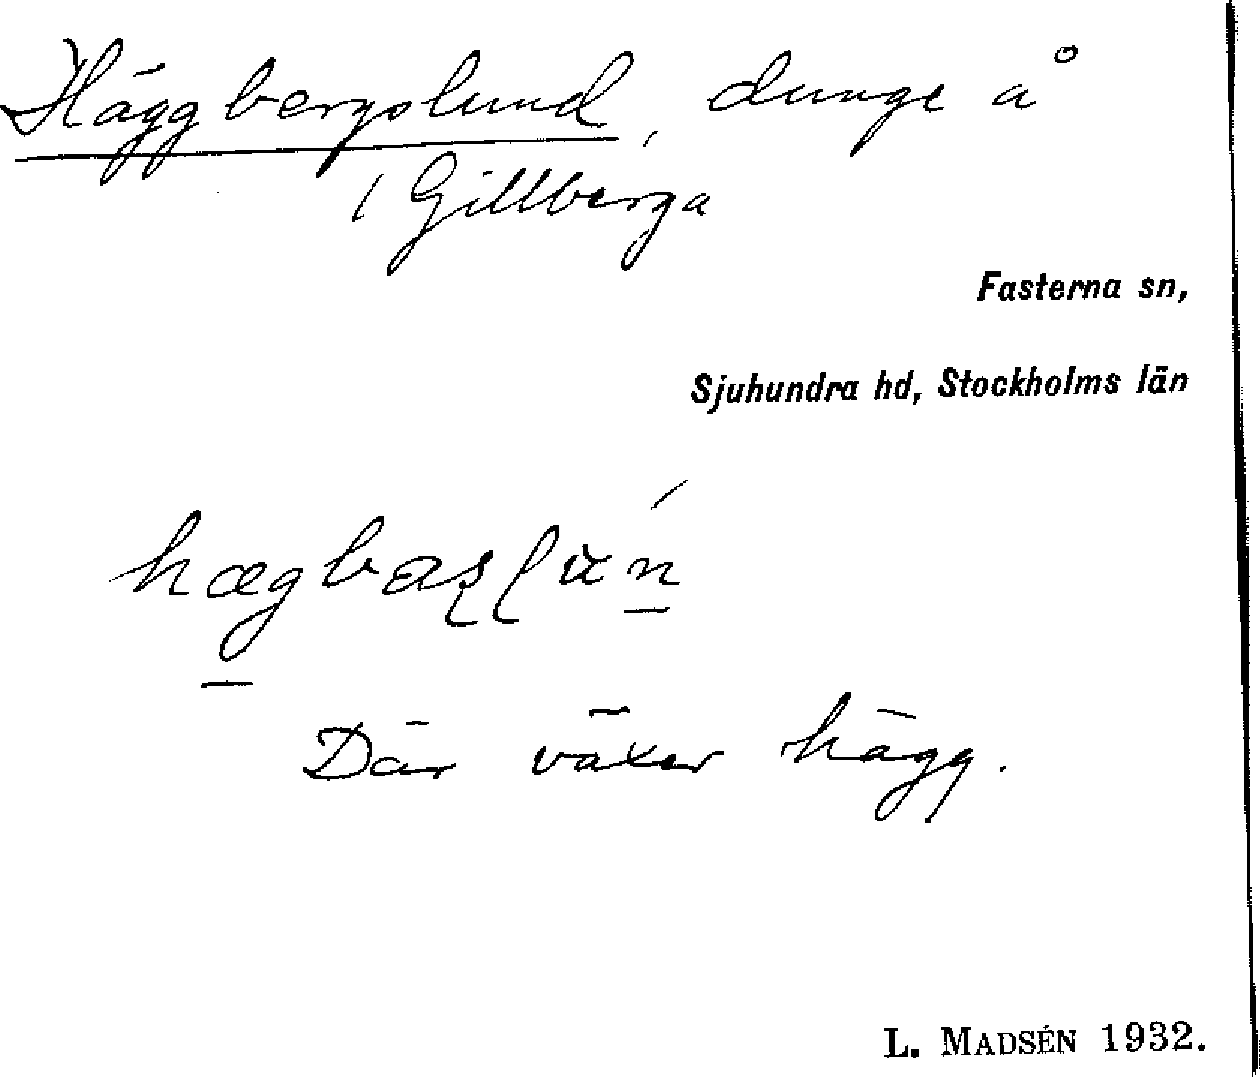 Häggbergslund, dunge å
/ Gillberga
Fasterna sn,
Sjuhundra hd, Stockholms län
Där växer hägg.
L. MADSÉN 1932.